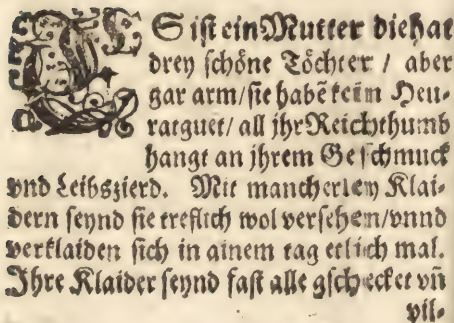 ES ist ein Mutter die hat
drey schöne Töchter / aber
gar arm/sie habẽ keim Heu-
ratguet/ all jhr Reichthumb
hangt an jhrem Geschmuck
vnd Leibszierd. Mit mancherley Klai-
dern seynd sie treflich wol versehem/vnnd
verklaiden sich in ainem tag etlich mal.
Jhre Klaider seynd fast alle gschecket vñ
vil-